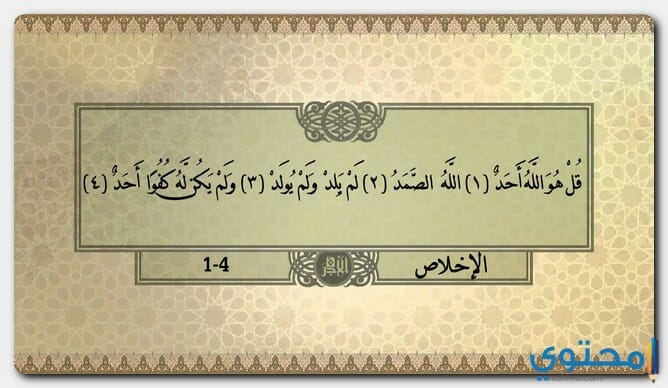 قُلْ هُوَ اللَّهُ أَحَدٌ (١) اللَّهُ الصَّمَدُ (٢) لَمْ يَلِدْ وَلَمْ يُولَدْ (٣) وَلَمْ يَكُن لَّهُ كُفُوًا أَحَدٌ (٤)
الإخلاص 1-4
محتوى